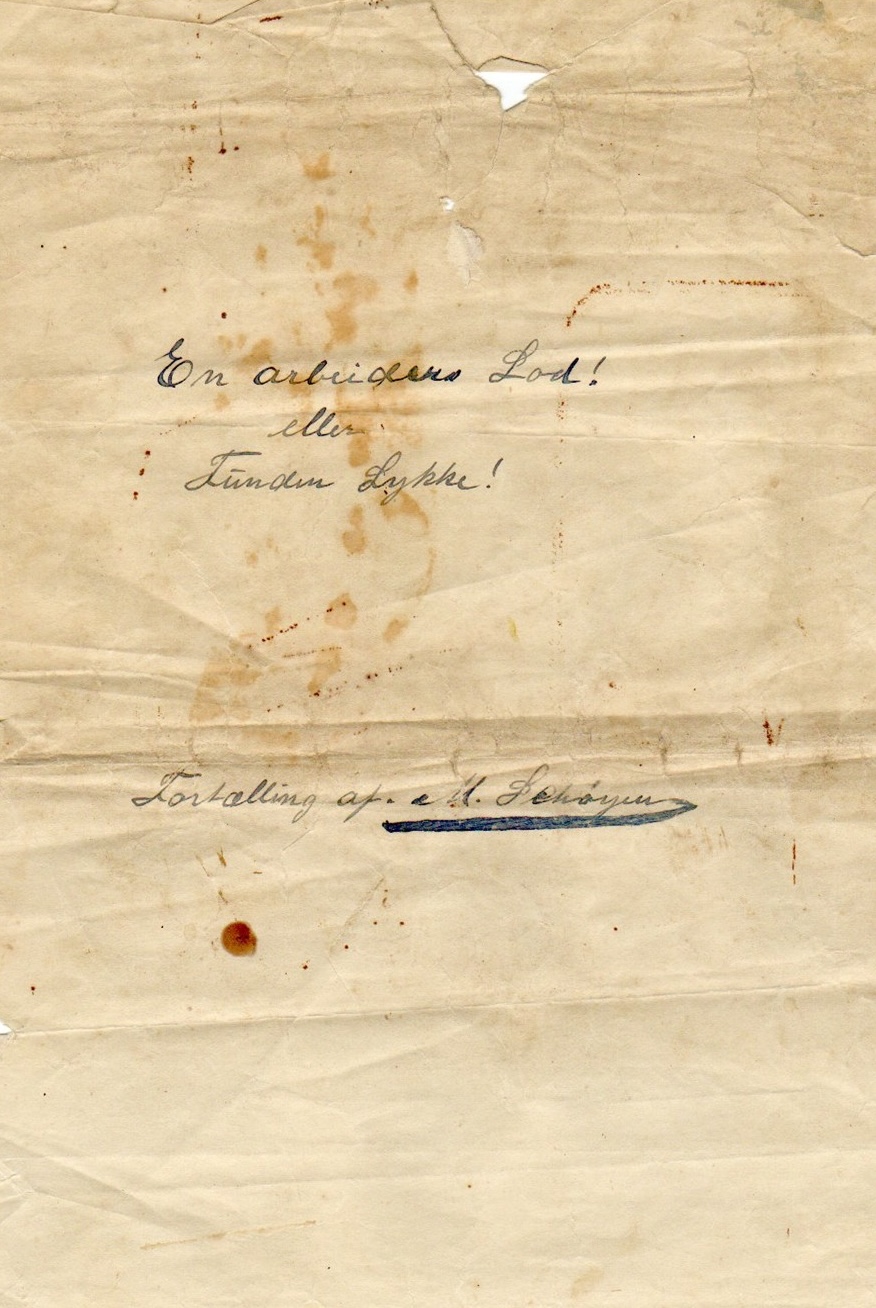 En arbeiders Lod!
eller
Funden Lykke!
Fortælling af. M. Schøyen